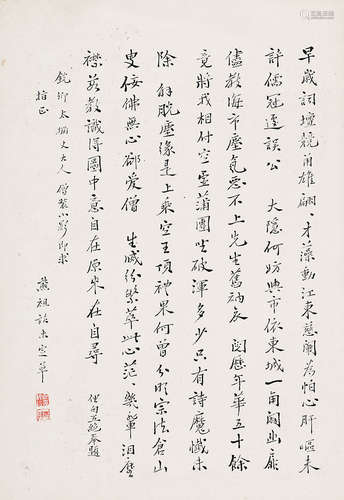 早歲詞壇競角雄翩翩才藻動江東 為怕心肝嘔未
許儒冠逕誤公 大隱何妨與市依東城一角闢幽扉
儘教海市塵氛惡不上先生舊衲衣 閱歷年華五十餘
竟將我相付空虛蒲團坐破渾多少只有詩魔懺未
除 解脫塵緣是上乘空王頂禮果何曾分明宗法倉山
叟佞佛無心卻愛僧 生滅紛繁 此心茫茫幾輩淚
襟若教識得圖中意自在原來在自尋 俚句五絕奉題
鏡卿太姻丈大人僧裝小影即求
指正
熊祖詒未定草